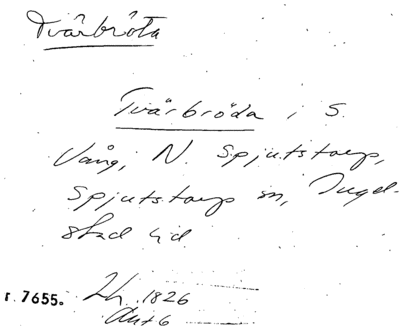 Tvärbröta
Tvärbröda i S.
Vång, N. Spjutstorp,
Spjutstorp sn, Ingel-
stad hd
r. 7655. Lh 1826
Akt 6